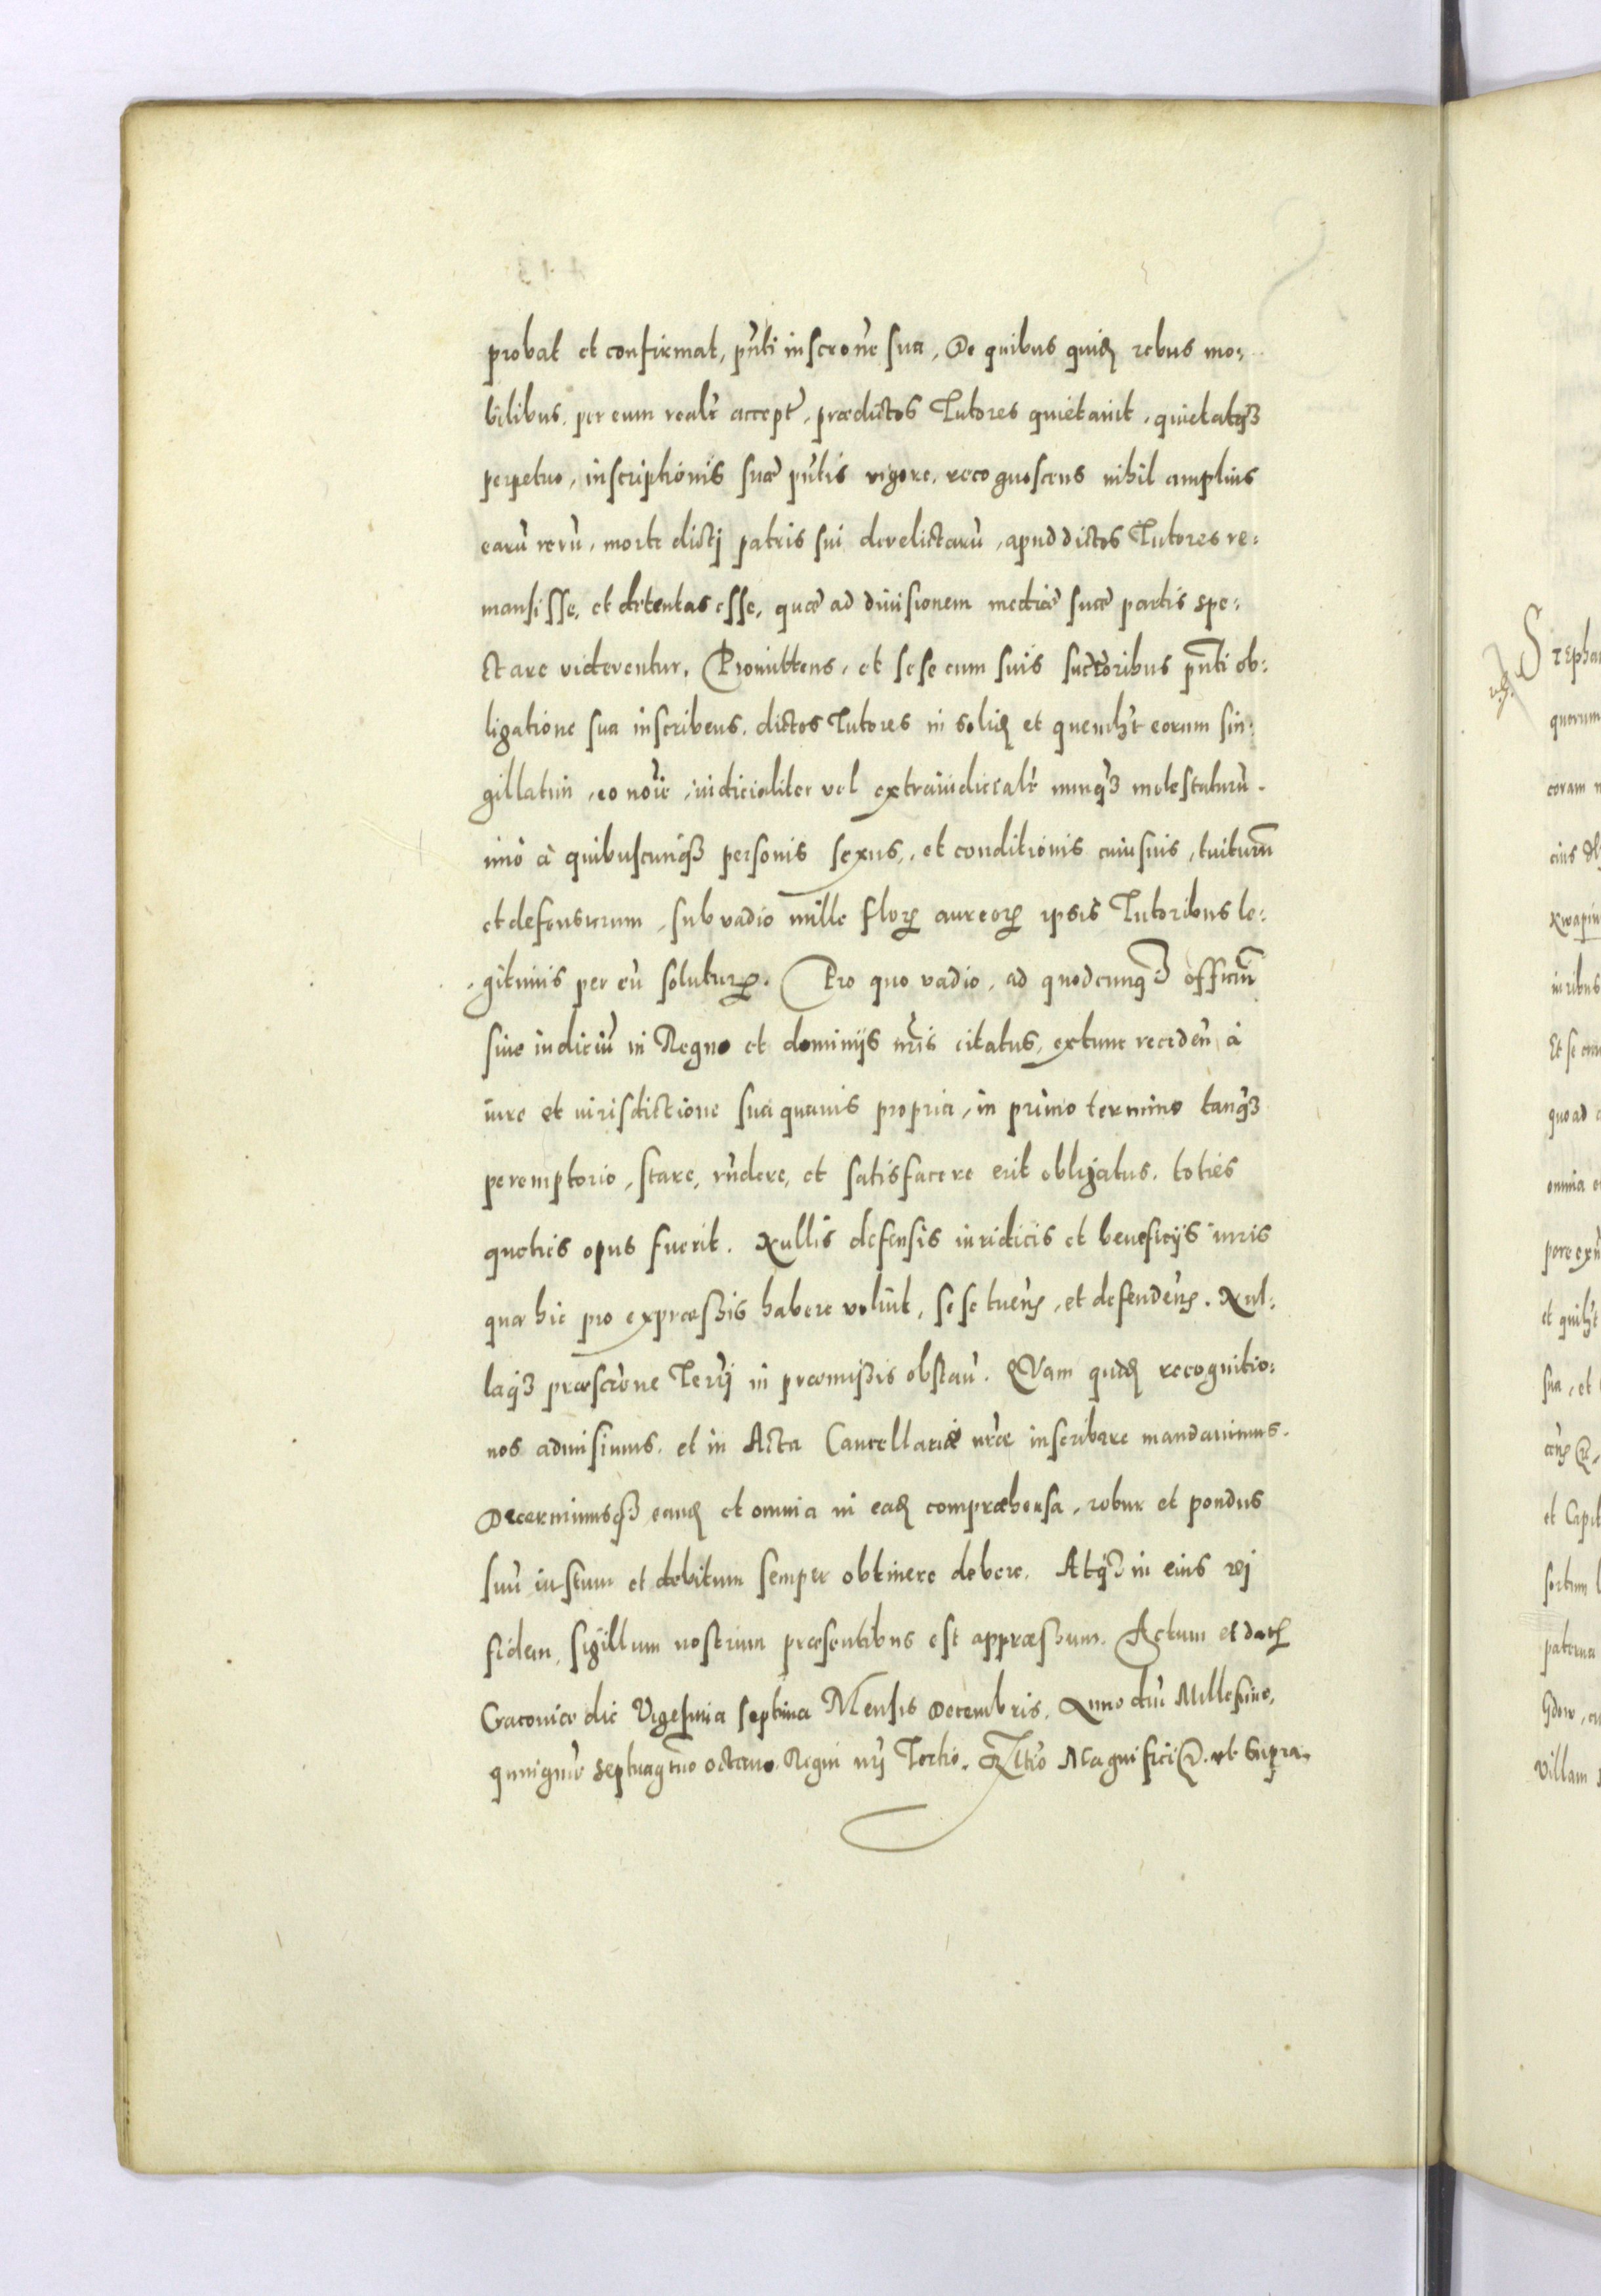 probat et confirmat, pñti inscrone sua, De quibus quid rebus mo:
bilibus, per eum realr accept, prædictos Tutores quietavit, quietatqȝ
perpetuo, inscriptionis suæ pñtis vigore, recognoscens nihil amplius
earũ rerũ, morte dictj patris sui derelictarũ, apud dictos Tutores re:
mansisse, et detentas esse, quæ ad divisionem mediæ suæ partis spe:
ctare viderentur, Promittens, et se se cum suis succoribus pñti ob:
ligatione sua inscribens, dictos Tutores in solid et quemlt eorum sin:
gillatim, eo noie, iudicialiter vel extraiudicialr nunqȝ molestaturũ.
imò à quibuscunqȝ personis sexus, et conditionis cuiusvis, tuiturum
et defensurum, sub vadio mille floꝝ aureoꝝ ipsis Tutoribus le:
gitimis per eũ soluturꝝ. Pro quo vadio, ad quodcunqȝ officiũ
sive iudiciũ in Regno et dominijs nris citatus, extunc recedeñ à
iure et iurisdictione sua quavis propria, in primo termino tanqȝ
peremptorio, stare, rñdere, et satisfacere erit obligatus, toties
quoties opus fuerit. Nullis defensis iuridicis et beneficijs iuris
quæ hic pro expræssis habere voluit, se se tueñ, et defendeñ. Nul:
laqȝ præscrone Terrj in præmissis obstañ. QVam quid recognitio:
nes admisimus, et in Acta Cancellariæ nræ inscribere mandavimus.
Decernimusqȝ eand et omnia in ead compræhensa, robur et pondus
suũ iustum et debitum semper obtinere debere. Atqȝ in eius rej
fidem, sigillum nostrum præsentibus est appræssum. Actum et dat
Cracoviæ die Vigesima septima Mensis Decembris, Anno dni Millesimo,
quingñto septuagmo octavo. Regni nrj Tertio. Rltio Magnifici etc. ut supra.
Stepha
quorum
coram
eius
iuribus
Et se
quoad
omnia
et
sua, et
et Capit
paterna
villam